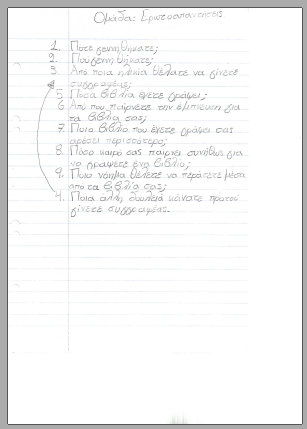 Ομάδα: Ερωτοαπαντήσεις
1. Πότε γεννηθήκατε;
2. Πού γεννηθήκατε;
3. Από ποια ηλικία θέλατε να γίνετε
συγγραφέας;
5. Πόσα βιβλία έχετε γράψει;
6. Από που παίρνετε την έμπνευση για
τα βιβλία σας;
7. Ποιο βιβλίο που έχετε γράψει σας
αρέσει περισσότερο;
8. Πόσο καιρό σας παίρνει συνήθως για
να γράψετε ένα βιβλίο;
9. Ποιο νόημα θέλετε να περάσετε μέσα
από τα βιβλία σας;
4. Ποια άλλη δουλειά κάνατε προτού
γίνετε συγγραφέας.